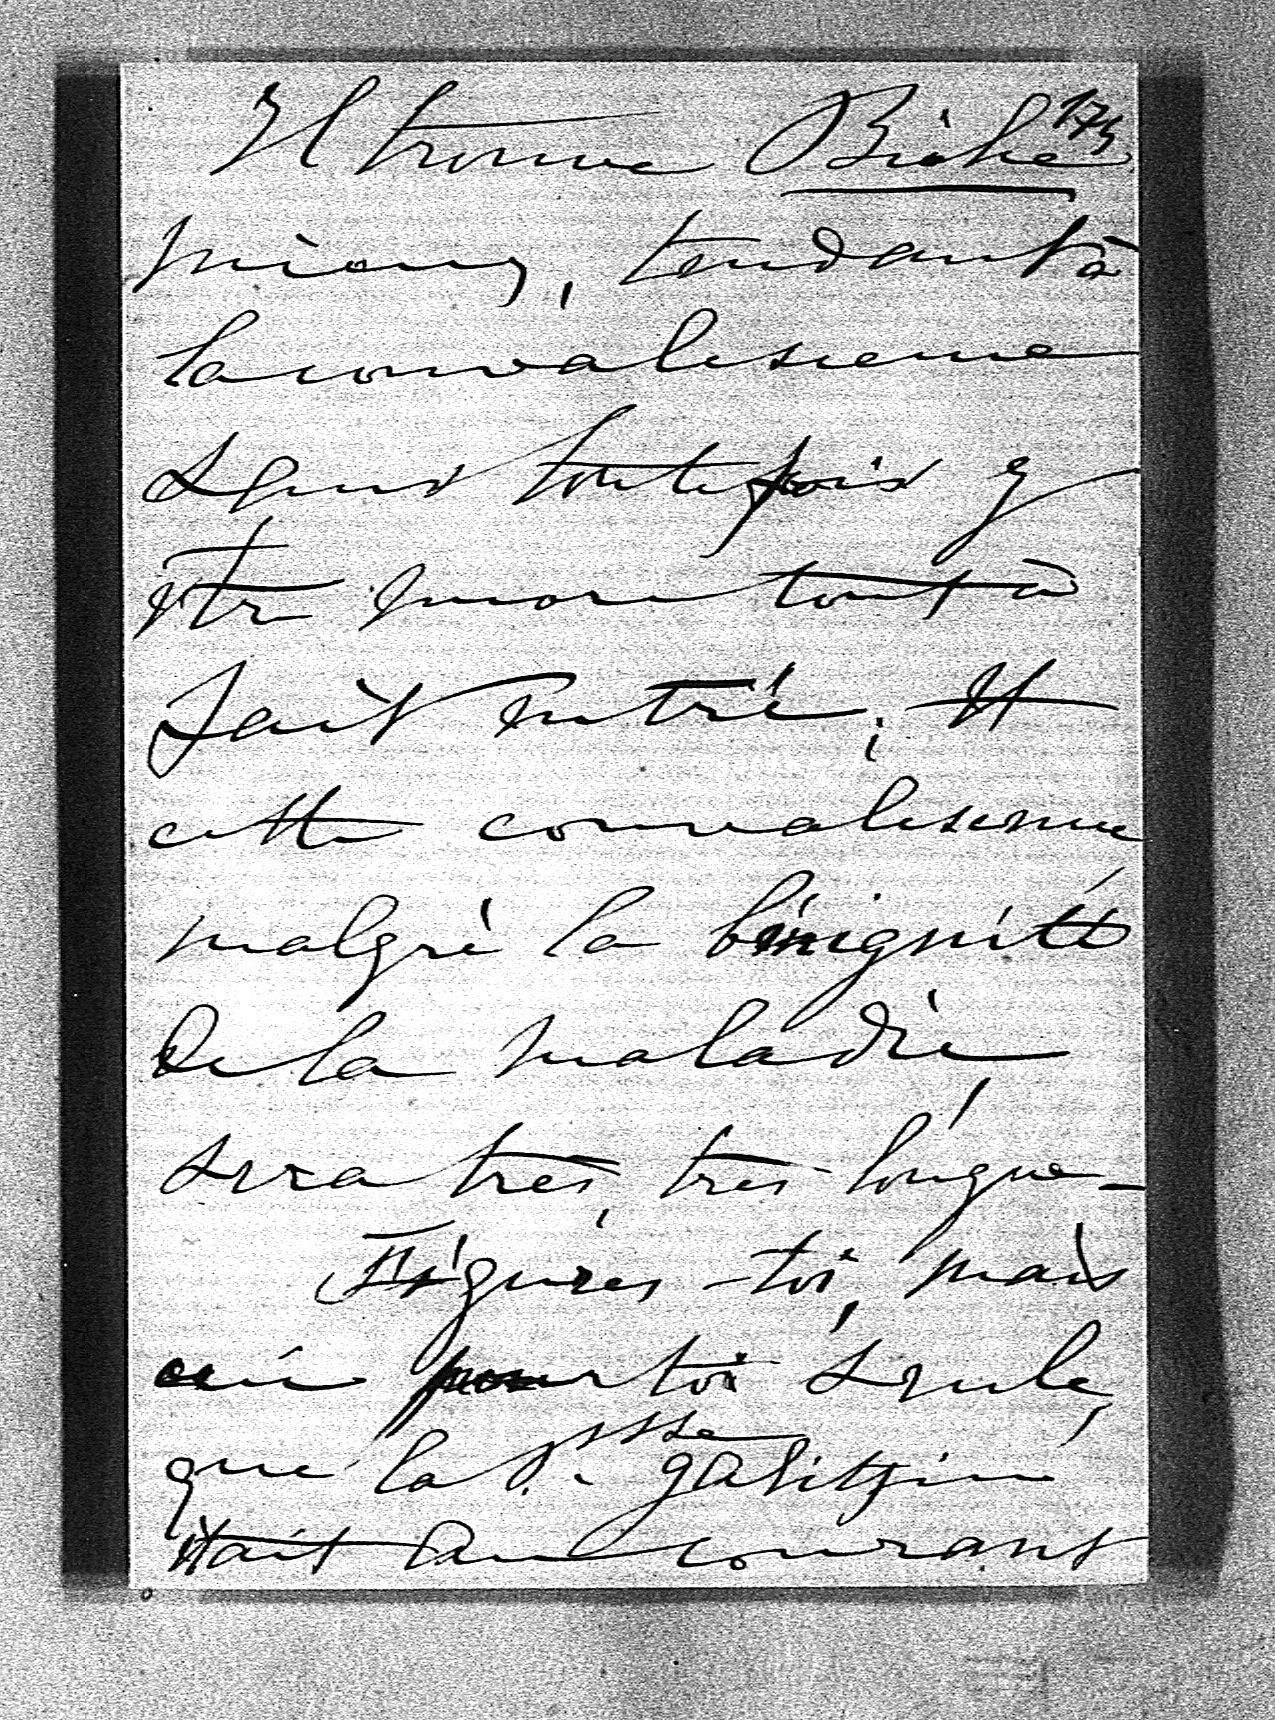 175
Il trouve Bichette
mieux, tendant à
la convalescence
sans toutefois y
être encore tout à
fait entrée; et
cette convalescence
malgré la bénignité,
de la maladie,
sera très, très longue –
Figures-toi, mais
ceci pour toi seule,
que la P.sse Galitzine
était au courant